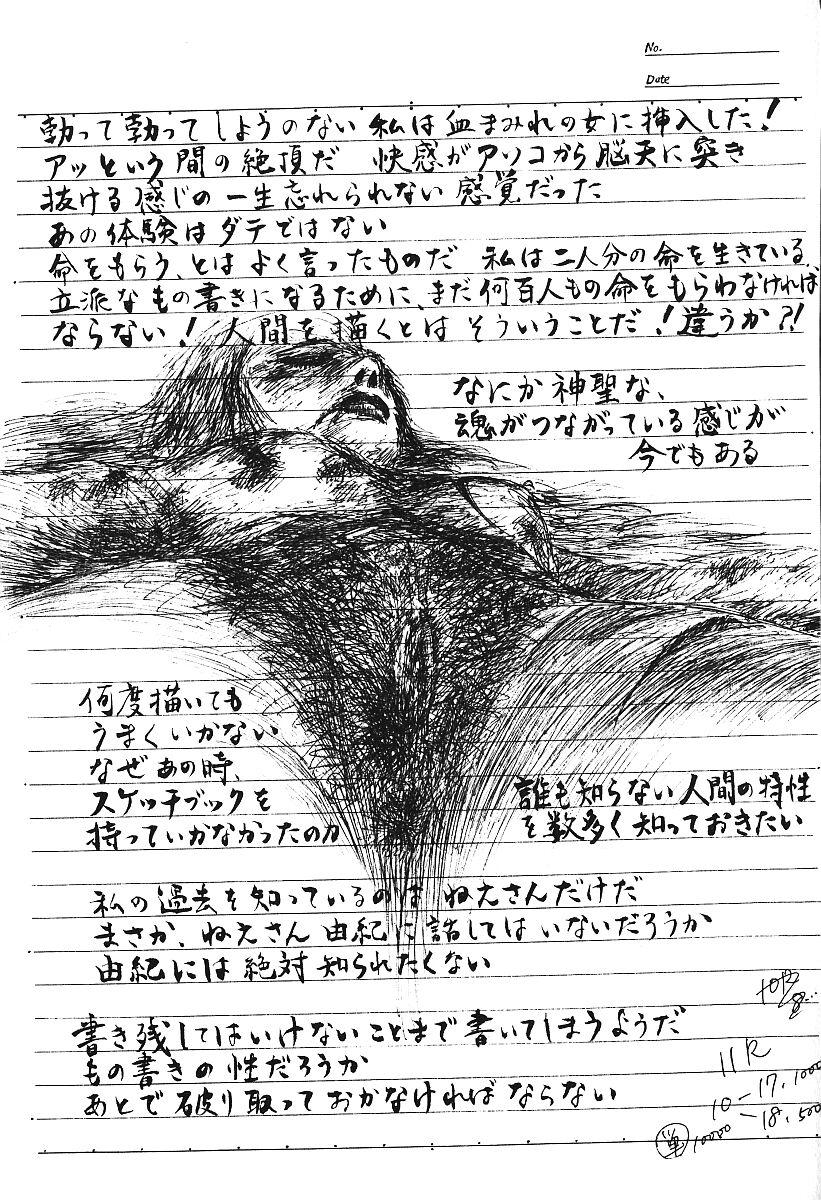 No.
Date
勃って勃ってしようのない 私は血まみれの女に挿入した！
アッという間の絶頂だ 快感がアソコから脳天に突き
抜ける感じの一生忘れられない感覚だった
あの体験はダテではない
命をもらう、とはよく言ったものだ 私は二人分の命を生きている、
立派なもの書きになるために、まだ何百人もの命をもらわなければ
ならない！ 人間を描くとはそういうことだ！違うか?!
なにか神聖な、
魂がつながっている感じが
今でもある
何度描いても
うまくいかない
なぜあの時、
スケッチブックを
持っていかなかったのか
誰も知らない人間の特性
を数多く知っておきたい
私の過去を知っているのは ねえさんだけだ
まさか、ねえさん 由紀に話してはいないだろうか
由紀には絶対知られたくない
書き残してはいけないことまで書いてしまうようだ
もの書きの性だろうか
あとで破り取っておかなければならない
11R
10-17.1000
単 10000 -18.500